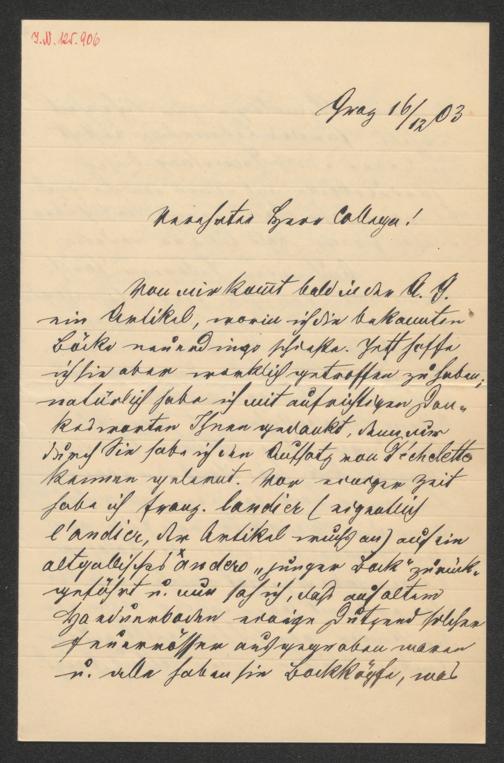 I.N. 125.906
Graz 16/12 03
Verehrter Herr College!
Von mir kom̅t bald in der A. Z.
ein Artikel, worin ich die bekannten
Böcke neuerdings schieße. Jetzt hoffe
ich sie aber wirklich getroffen zu haben;
natürlich habe ich mit aufrichtigen Dan-
kesworten Ihnen gedankt, denn nur
durch Sie habe ich den Aufsatz von Déchelette
kennen gelernt. Vor einiger Zeit
habe ich franz. landier (eigentlich
l'andier, der Artikel wuchs an) auf ein
altgallisches *andero „junger Bock" zurück-
geführt u. nun sah ich, daß auf altem
Haeduerboden einige Dutzend solcher
Feuerrösser ausgegraben waren
u. alle haben sie Bockköpfe, was